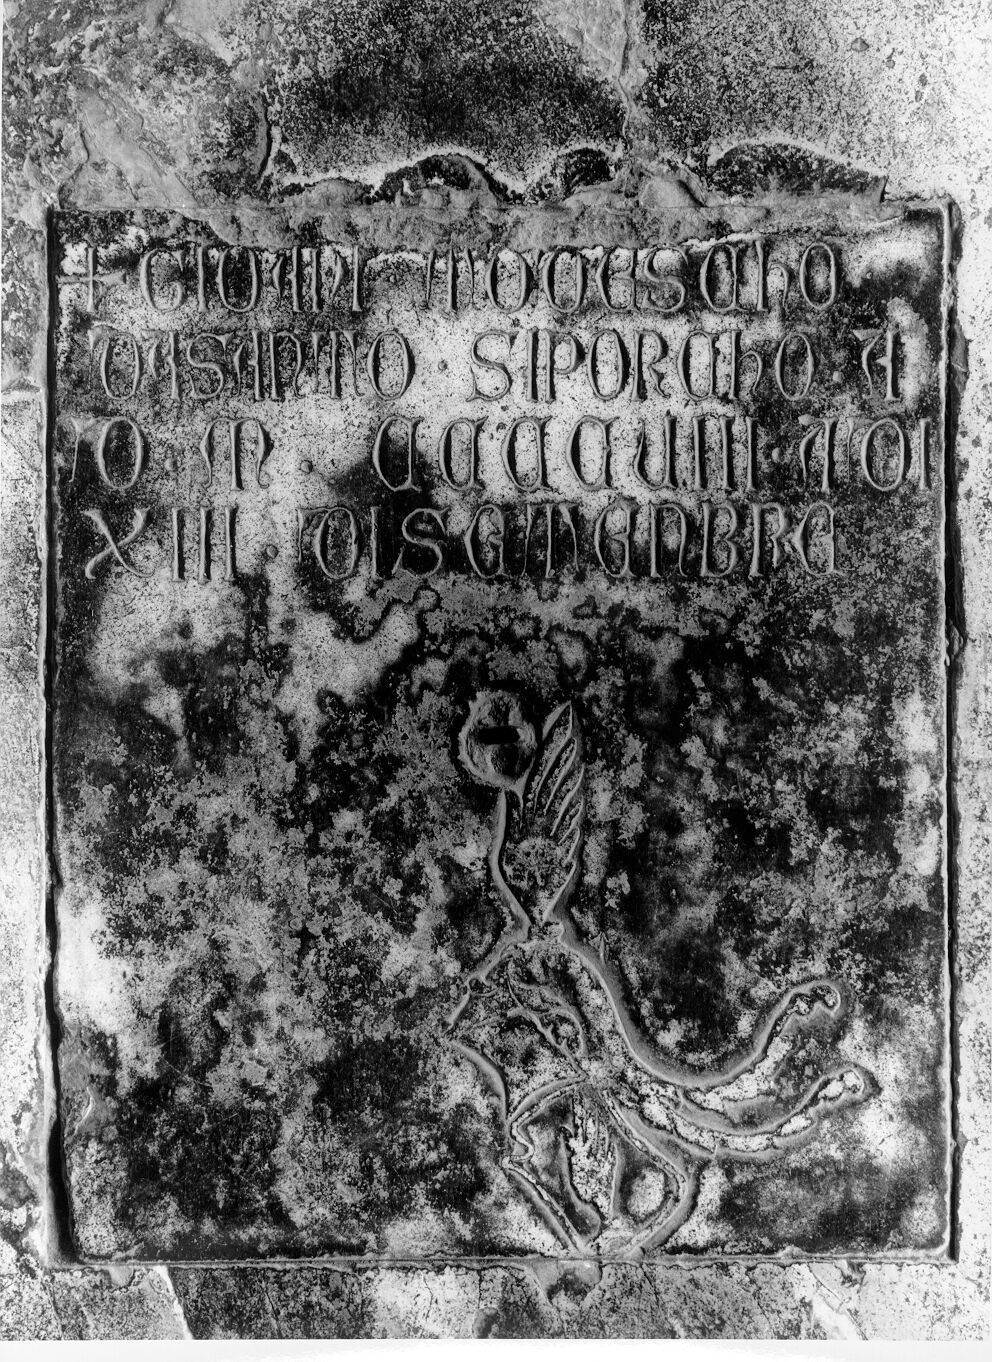 + GIUANI TODESCHO
DISANTO · SIPORCHO · A
DO · M · CCCCUIII · ADI
XIII · DISETENBRE